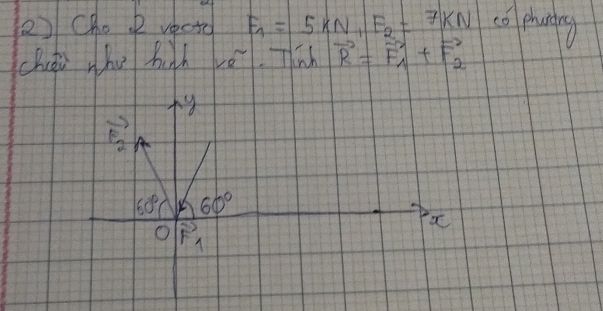 2) Cho 2 vectơ F₁ = 5KN, F₂ = 7KN có phương
chiều như hình vẽ. Tính R⃗ = F⃗₁ + F⃗₂
y
F⃗₂
60° 60°
O F⃗₁ x